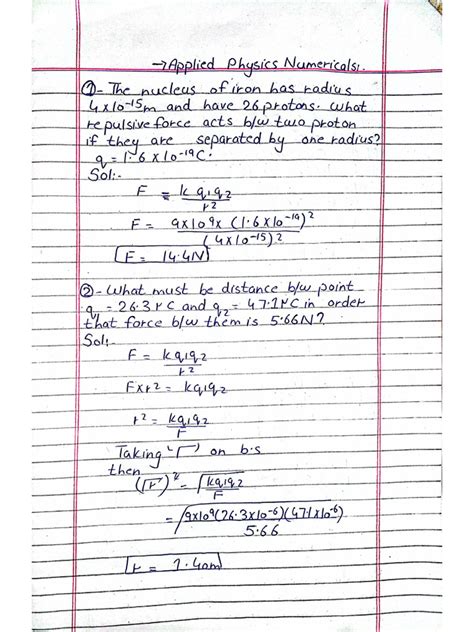 → Applied Physics Numericals:
①- The nucleus of iron has radius
4x10-15m and have 26 protons. What
repulsive force acts b/w two proton
if they are separated by one radius?
q = 1.6 x 10-19C.
Sol:-
F = k q1q2
r2
F = 9x10⁹x (1.6x10-19)2
(4x10-15)2
F = 14.4N
②- What must be distance b/w point
q1 = 26.3 μC and q2 = 47.1μC in order
that force b/w them is 5.66N?
Sol:-
F = kq1q2
r2
Fxr2 = kq1q2
r2 = kq1q2
F
Taking '√' on b.s
then
(√r)2 = √kq1q2
F
= √9x10⁹(26.3x10-6)(471x10-6)
5.66
r = 1.40m